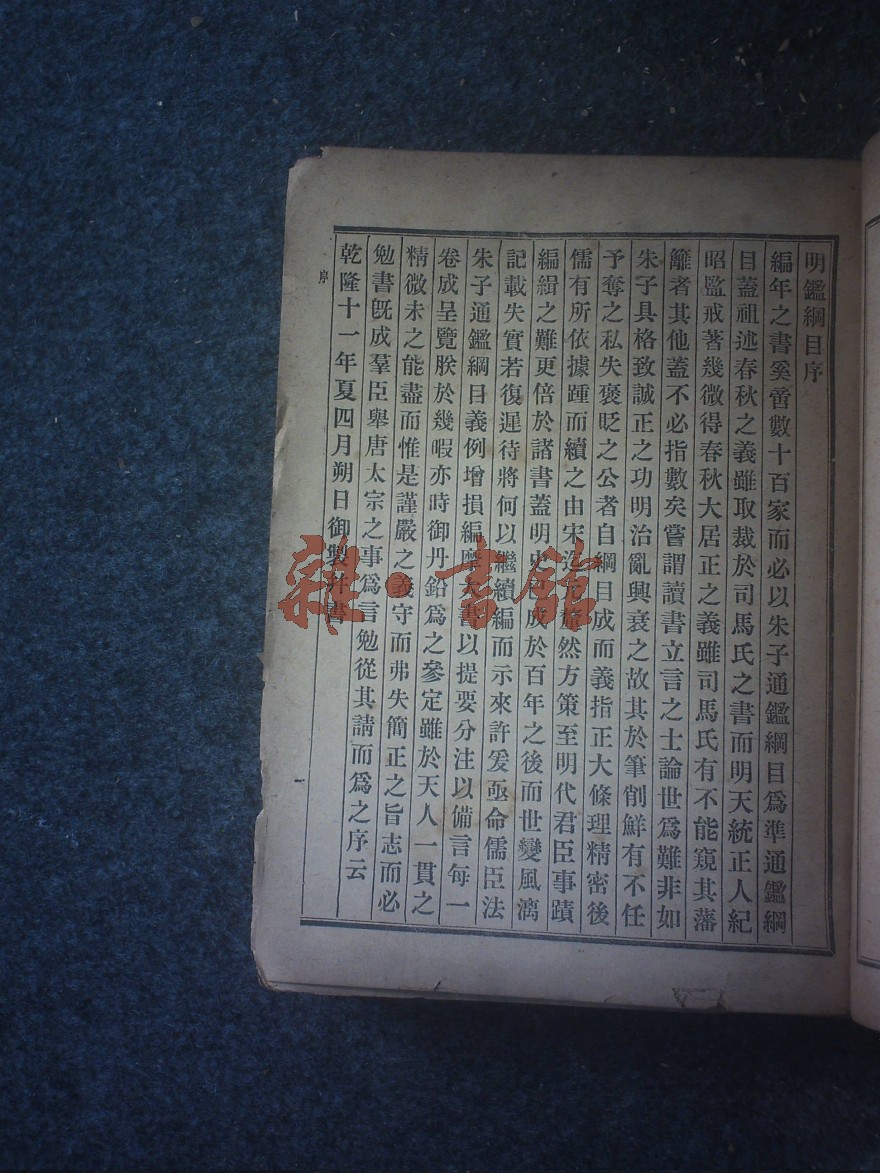 明鑑綱目序
編年之書奚啻數十百家而必以朱子通鑑綱目爲準通鑑綱
目蓋祖述春秋之義雖取裁於司馬氏之書而明天統正人紀
昭監戒著幾微得春秋大居正之義雖司馬氏有不能窺其藩
籬者其他蓋不必指數矣嘗謂讀書立言之士論世爲難非如
朱子具格致誠正之功明治亂興衰之故其於筆削鮮有不任
予奪之私失褒貶之公者自綱目成而義指正大條理精密後
儒有所依據踵而續之由宋迄元釐然方策至明代君臣事蹟
編緝之難更倍於諸書蓋明史已成於百年之後而世變風漓
記載失實若復遲待將何以繼續編而示來許爰亟命儒臣法
朱子通鑑綱目義例增損編摩大書以提要分注以備言每一
卷成呈覽朕於幾暇亦時御丹鉛爲之參定雖於天人一貫之
精微未之能盡而惟是謹嚴之義守而弗失簡正之旨志而必
勉書旣成羣臣舉唐太宗之事爲言勉從其請而爲之序云
乾隆十一年夏四月朔日御製幷書
序
雜·書館